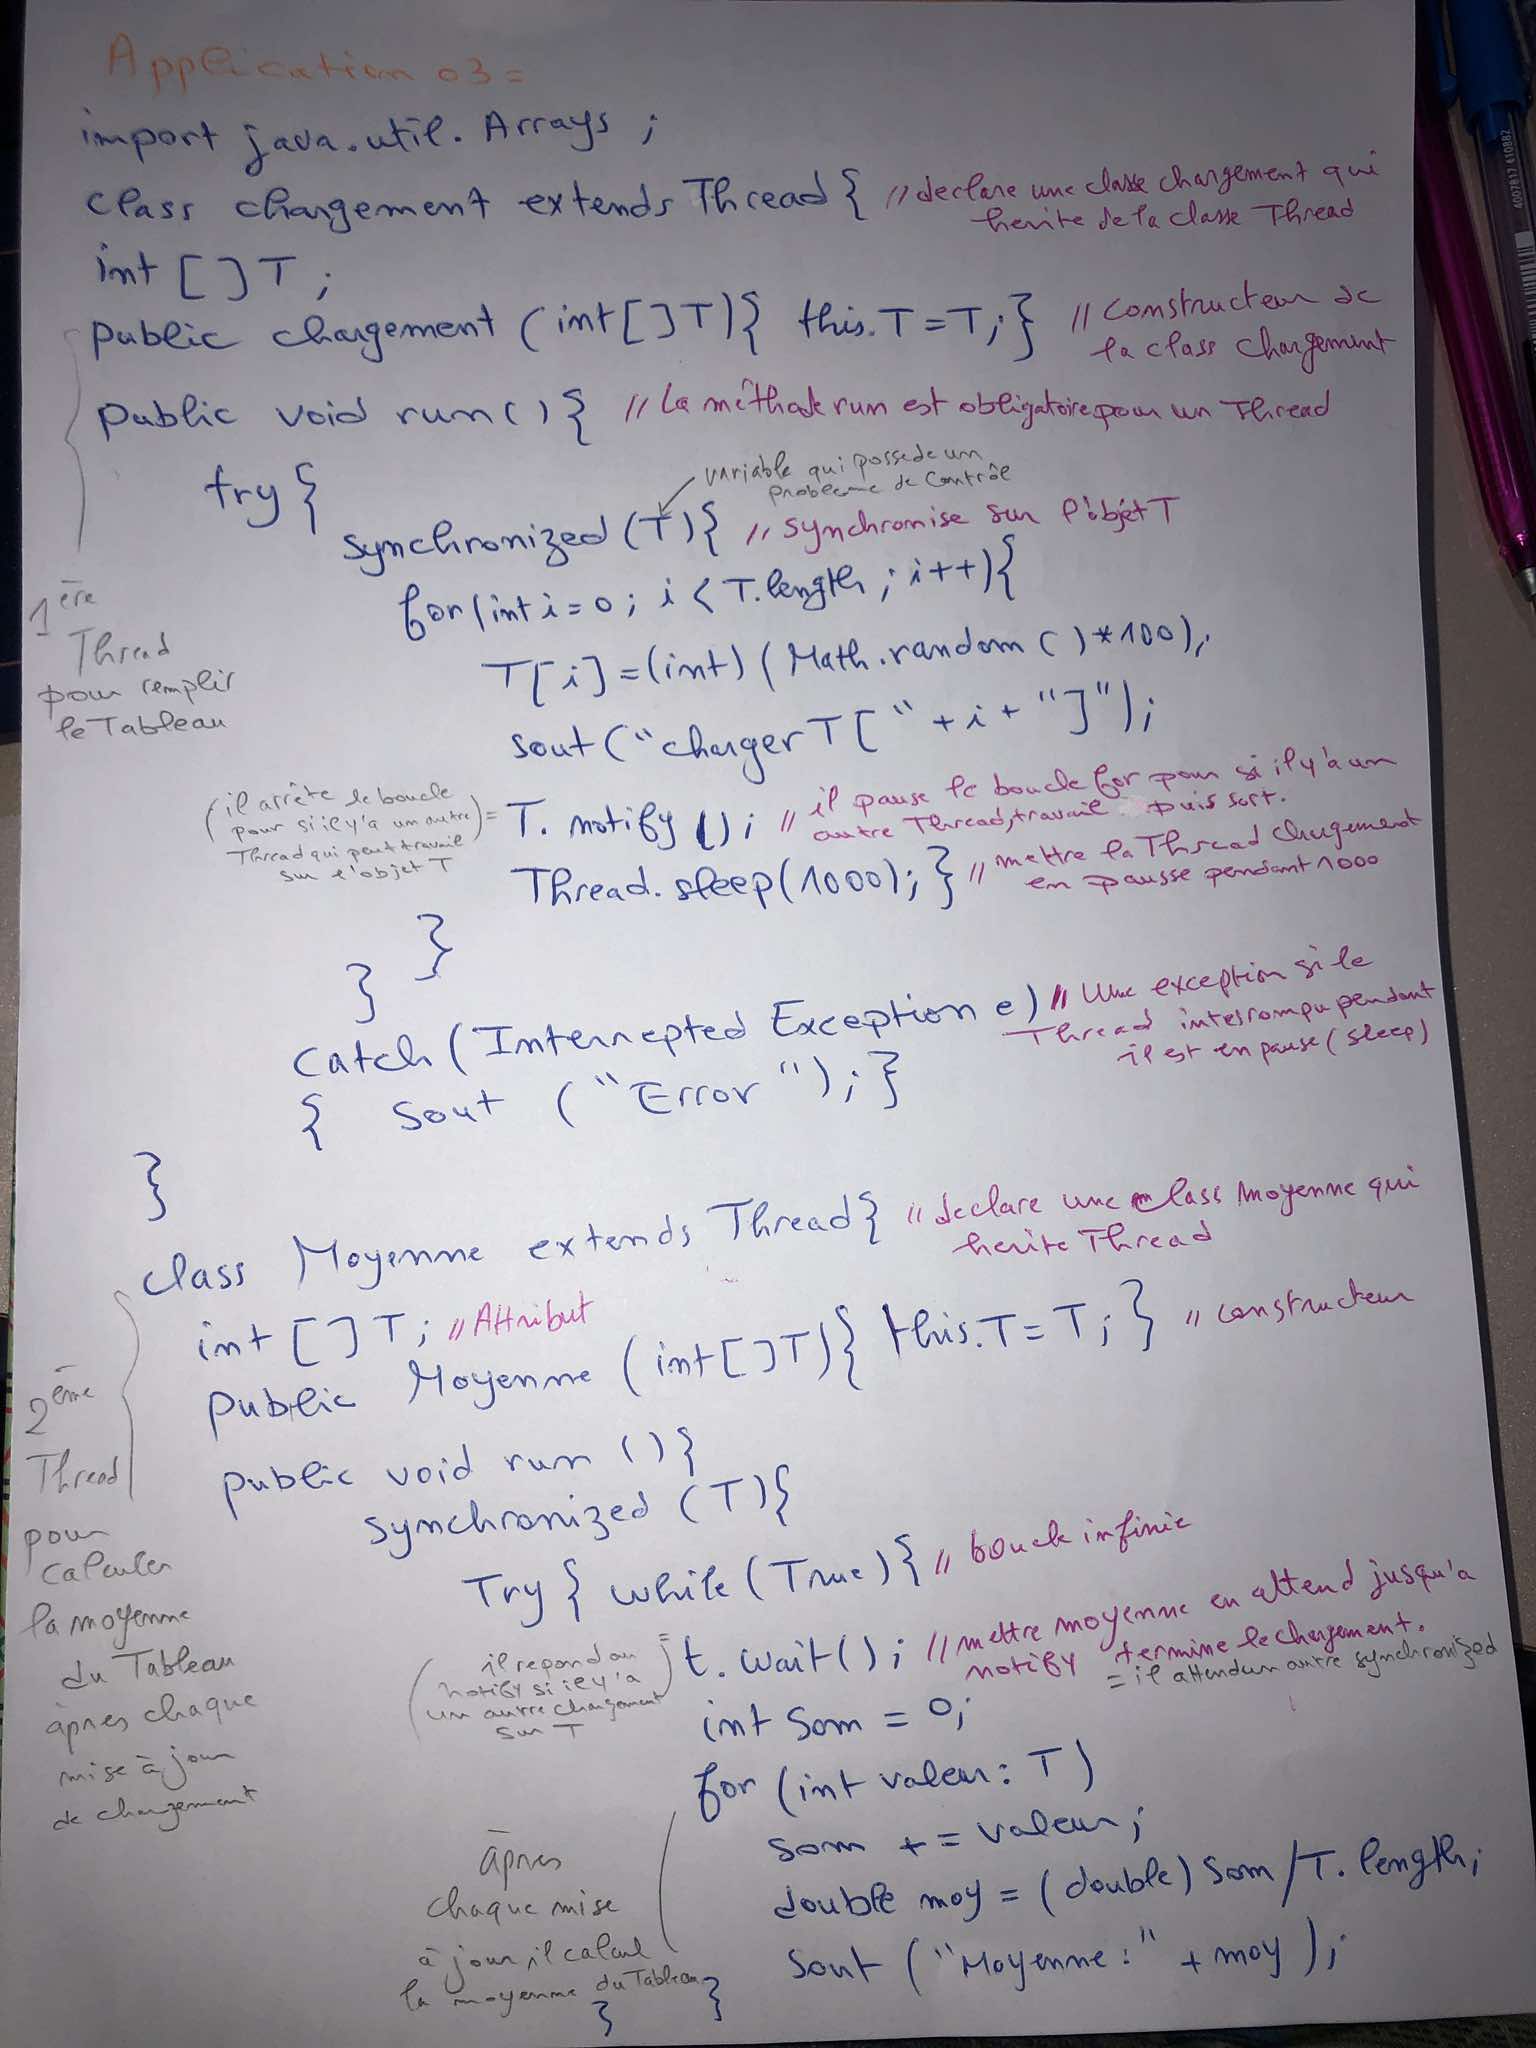 Application 03 =
import java.util.Arrays ;
class chargement extends Thread { // declare une classe chargement qui
herite de la classe Thread
int [ ] T ;
public chargement (int [ ] T) { this.T = T ; } // constructeur de
la class chargement
public void run() { // la méthode run est obligatoire pour un Thread
try {
variable qui possede un
probleme de contrôle
synchronized (T) { // synchronise sur l'objet T
for (int i = 0 ; i < T.length ; i++) {
1ère
Thread
pour remplir
le Tableau
T[i] = (int) (Math.random ( ) * 100),
sout ("charger T [ " + i + " ] ") ;
(il arrête le boucle
pour si il y'a un autre
Thread qui peut travail
sur l'objet T) =
T. notify () ; // il pause le boucle for pour si il y'a un
autre Thread, travail puis sort.
Thread.sleep(1000) ; } // mettre la Thread chargement
en pausse pendant 1000
}
}
catch (Interrepted Exception e) // Une exception si le
Thread interrompu pendant
il est en pause (sleep)
{ sout ("Error") ; }
}
class Moyenne extends Thread { // declare une class Moyenne qui
herite Thread
int [ ] T ; // Attribut
public Moyenne (int [ ] T) { this.T = T ; } // constructeur
2ème
Thread
pour
calculer
la moyenne
du Tableau
àpres chaque
mise à jour
de chargement
public void run () {
synchronized (T) {
Try { while (True) { // boucle infinie
(il repond au
notify si il y'a
un autre chargement
sur T) =
t. wait() ; // mettre moyenne en attend jusqu'a
notify termine le chargement.
= il attend un autre synchronized
int som = 0;
for (int valeur : T)
som += valeur ;
double moy = (double) som / T. length ;
sout ("Moyenne :" + moy ) ;
àpres
chaque mise
à jour il calcul
la moyenne du Tableau
}
}